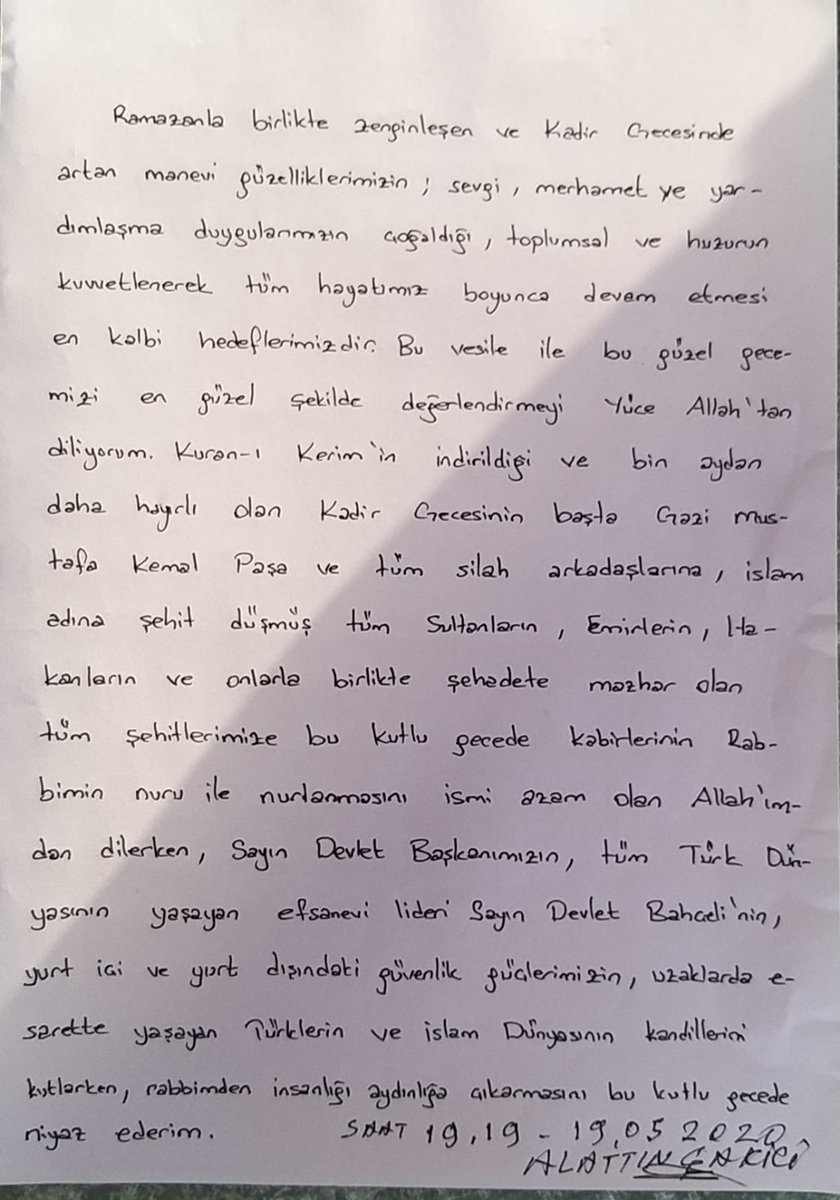 Ramazanla birlikte zenginleşen ve Kadir Gecesinde
artan manevi güzelliklerimizin ; sevgi , merhamet ve yar-
dımlaşma duygularımızın çoğaldığı , toplumsal ve huzurun
kuvvetlenerek tüm hayatımız boyunca devam etmesi
en kalbi hedeflerimizdir. Bu vesile ile bu güzel gece-
mizi en güzel şekilde değerlendirmeyi Yüce Allah'tan
diliyorum. Kuran-ı Kerim'in indirildiği ve bin aydan
daha hayırlı olan Kadir Gecesinin başta Gazi Mus-
tafa Kemal Paşa ve tüm silah arkadaşlarına , islam
adına şehit düşmüş tüm Sultanların , Emirlerin , Ha-
kanların ve onlarla birlikte şehadete mazhar olan
tüm şehitlerimize bu kutlu gecede kabirlerinin Rab-
bimin nuru ile nurlanmasını ismi azam olan Allah'ım-
dan dilerken , Sayın Devlet Başkanımızın , tüm Türk Dün-
yasının yaşayan efsanevi lideri Sayın Devlet Bahceli'nin ,
yurt içi ve yurt dışındaki güvenlik güçlerimizin , uzaklarda e-
sarette yaşayan Türklerin ve islam Dünyasının kandillerini
kutlarken , rabbimden insanlığı aydınlığa çıkarmasını bu kutlu gecede
niyaz ederim. SAAT 19,19 - 19.05 2020
ALATTİN ÇAKICI